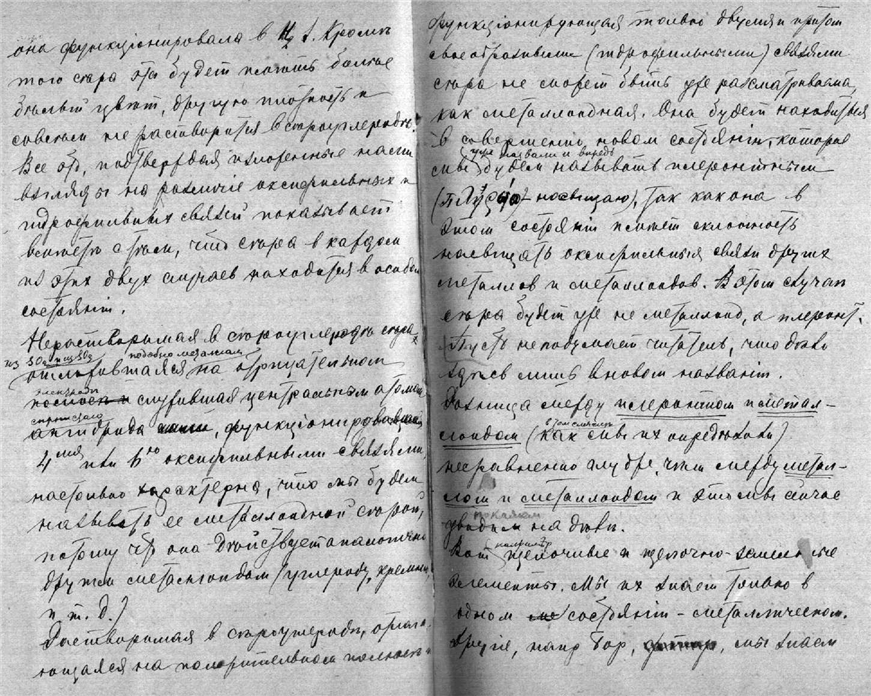 она функціонировала в
того сѣра эта будетъ имѣть болѣе
бѣлый цвѣт, другую плотность и
совсѣм не растворится в сѣроуглеродѣ.
Все это, подтверждая изложенные нами
взгляды на различіе оксифильных и
гидрофильных связей показывает
вмѣстѣ с тѣм, что сѣра в каждом
из этих двух случаев находится в особом
состояніи.
Нерастворимая в сѣроуглеродѣ сѣра,
из SO₂ или SO₃ подобно металлам
отложившаяся на отрицательном
электродѣ служившая центральным атомом
ангидрида, функціонировавшая
4мя или 6ю оксифильными связями
настолько характерна, что мы будем
называть ее металлоидной сѣрой,
потому что она дѣйствует аналогично
другим металлоидам (углероду, кремнію,
и т. д.)
Растворимая в сѣроуглеродѣ, отлага-
ющаяся на положительном полюсѣ и
функціонирующая только двумя и притом
своеобразными (гидрофильными) связями
сѣра не может быть уже разсматриваема,
как металлоидная. Она будет находиться
в совершенно новом состояніи, которое
уже назвали и впредь
мы будем называть плеронтным
насыщаю), так как она в
этом состояніи имѣет склонность
насыщать оксифильныя связи других
металлов и металлоидов. В этом случаѣ
сѣра будет уже не металлоид, а плеронт.
Пусть не подумает читатель, что дѣло
здѣсь лишь в новом названіи.
Разница между плеронтом и метал-
лоидом (как мы их опредѣлили)
в этом смыслѣ
несравненно глубже, чѣм между метал-
лом и металлоидом и это мы сейчас
покажем
увидим на дѣлѣ.
Вот например щелочные и щелочно-земельные
элементы. Мы их знаем только в
одном состояніи – металлическом.
Другіе, напр бор, мы знаем